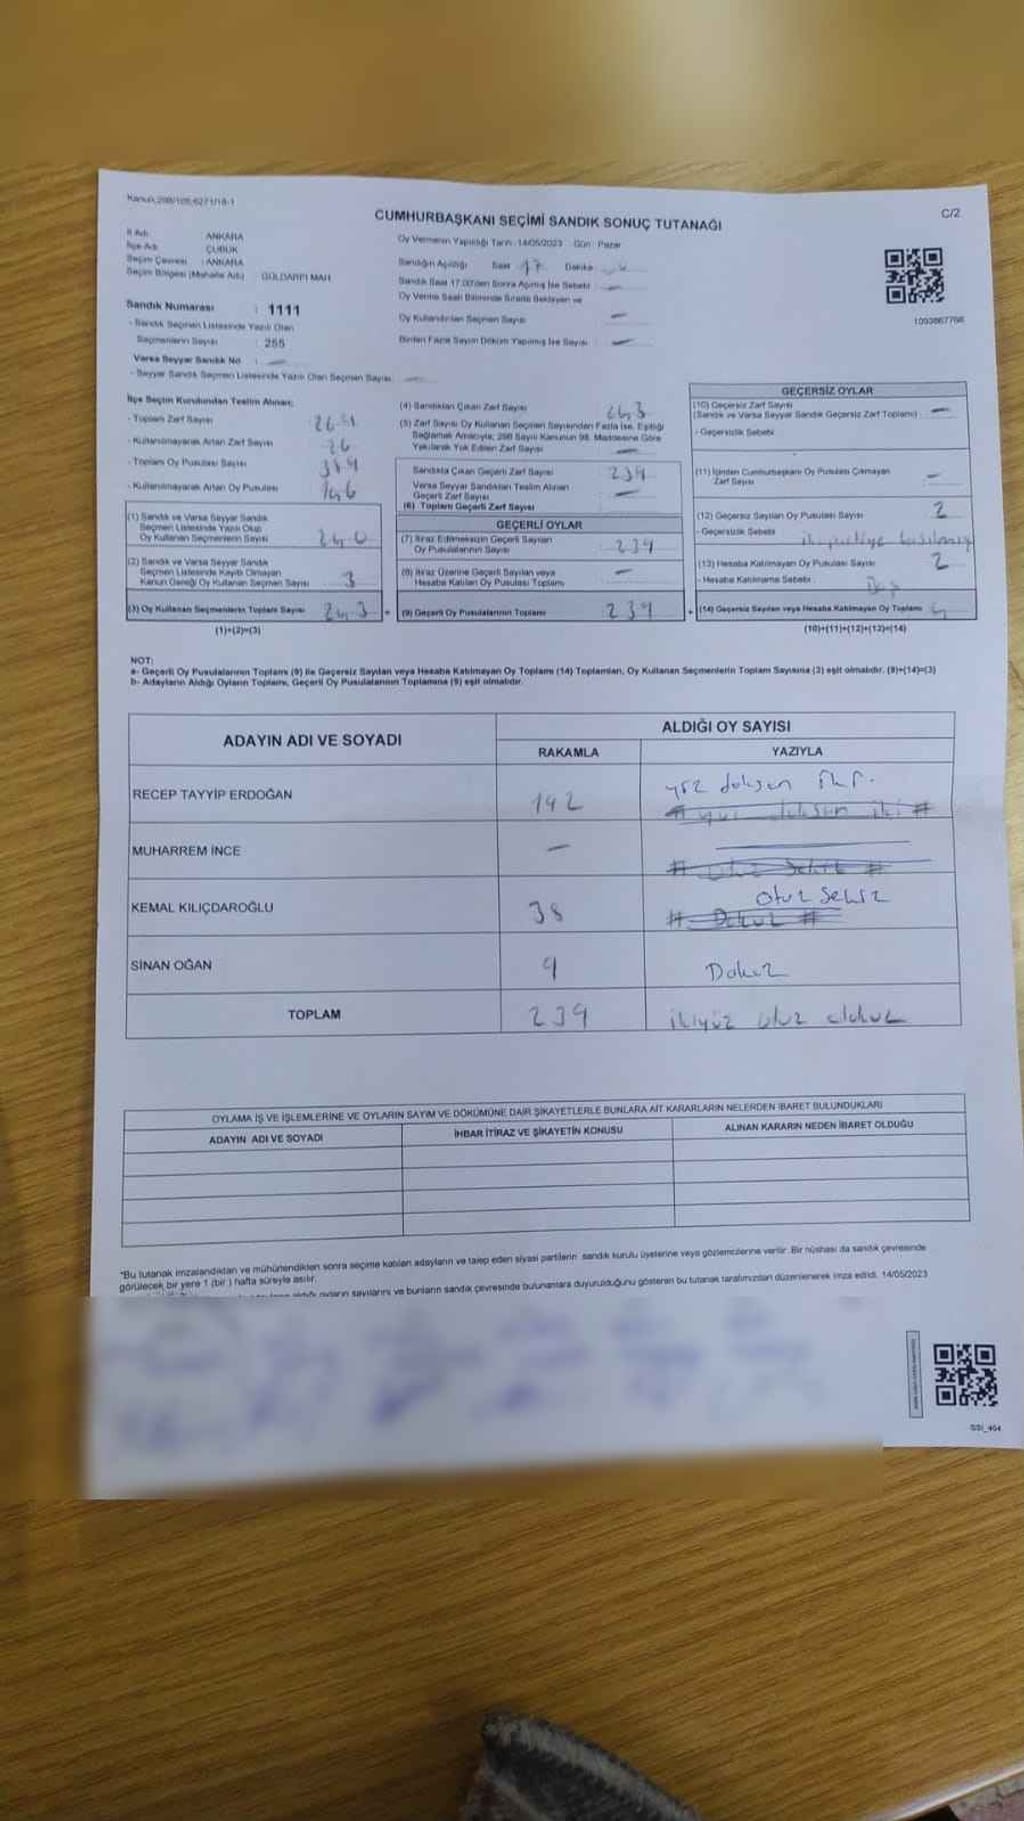 Kanun,298/105,6271/18-1
C/2
CUMHURBAŞKANI SEÇİMİ SANDIK SONUÇ TUTANAĞI
İl Adı : ANKARA
İlçe Adı : ÇUBUK
Seçim Çevresi : ANKARA
Seçim Bölgesi (Muhalle Adı) : GÜLDARPI MAH
Sandık Numarası : 1111
- Sandık Seçmen Listesinde Yazılı Olan
Seçmenlerin Sayısı : 255
Varsa Seyyar Sandık No : —
- Seyyar Sandık Seçmen Listesinde Yazılı Olan Seçmen Sayısı —
Oy Vermenin Yapıldığı Tarih : 14/05/2023 Gün : Pazar
Sandığın Açıldığı Saat 17 Dakika
Sandık Saat 17.00'den Sonra Açılmış İse Sebebi : —
Oy Verme Saati Bitiminde Sırada Bekleyen ve
Oy Kullandırılan Seçmen Sayısı —
Birden Fazla Sayım Döküm Yapılmış İse Sayısı —
1093867768
İlçe Seçim Kurulundan Teslim Alınan;
- Toplam Zarf Sayısı
- Kullanılmayarak Artan Zarf Sayısı 26
- Toplam Oy Pusulası Sayısı
- Kullanılmayarak Artan Oy Pusulası 146
(1) Sandık ve Varsa Seyyar Sandık
Seçmen Listesinde Yazılı Olup
Oy Kullanan Seçmenlerin Sayısı 240
(2) Sandık ve Varsa Seyyar Sandık
Seçmen Listesinde Kayıtlı Olmayan
Kanun Gereği Oy Kullanan Seçmen Sayısı 3
(3) Oy Kullanan Seçmenlerin Toplam Sayısı 243
(1)+(2)=(3)
(4) Sandıktan Çıkan Zarf Sayısı 243
(5) Zarf Sayısı Oy Kullanan Seçmen Sayısından Fazla İse, Eşitliği
Sağlamak Amacıyla, 298 Sayılı Kanunun 98. Maddesine Göre
Yakılarak Yok Edilen Zarf Sayısı —
Sandıkta Çıkan Geçerli Zarf Sayısı 239
Varsa Seyyar Sandıktan Teslim Alınan
Geçerli Zarf Sayısı —
(6) Toplam Geçerli Zarf Sayısı
GEÇERLİ OYLAR
(7) İtiraz Edilmeksizin Geçerli Sayılan
Oy Pusulalarının Sayısı 239
(8) İtiraz Üzerine Geçerli Sayılan veya
Hesaba Katılan Oy Pusulası Toplamı —
(9) Geçerli Oy Pusulalarının Toplamı 239
GEÇERSİZ OYLAR
(10) Geçersiz Zarf Sayısı —
(Sandık ve Varsa Seyyar Sandık Geçersiz Zarf Toplamı)
- Geçersizlik Sebebi
(11) İçinden Cumhurbaşkanı Oy Pusulası Çıkmayan
Zarf Sayısı —
(12) Geçersiz Sayılan Oy Pusulası Sayısı 2
- Geçersizlik Sebebi
(13) Hesaba Katılmayan Oy Pusulası Sayısı 2
- Hesaba Katılmama Sebebi Boş
+ (14) Geçersiz Sayılan veya Hesaba Katılmayan Oy Toplamı 4
(10)+(11)+(12)+(13)=(14)
NOT:
a- Geçerli Oy Pusulalarının Toplamı (9) ile Geçersiz Sayılan veya Hesaba Katılmayan Oy Toplamı (14) Toplamları, Oy Kullanan Seçmenlerin Toplam Sayısına (3) eşit olmalıdır. (9)+(14)=(3)
b- Adayların Aldığı Oyların Toplamı, Geçerli Oy Pusulalarının Toplamına (9) eşit olmalıdır.
ADAYIN ADI VE SOYADI
ALDIĞI OY SAYISI
RAKAMLA
YAZIYLA
RECEP TAYYİP ERDOĞAN 192 yüz doksan iki.
# yüz doksan iki #
MUHARREM İNCE —
# Otuz Sekiz #
KEMAL KILIÇDAROĞLU 38 Otuz Sekiz
# Dokuz #
SİNAN OĞAN 9 Dokuz
TOPLAM 239 ikiyüz otuz dokuz
OYLAMA İŞ VE İŞLEMLERİNE VE OYLARIN SAYIM VE DÖKÜMÜNE DAİR ŞİKAYETLERLE BUNLARA AİT KARARLARIN NELERDEN İBARET BULUNDUKLARI
ADAYIN ADI VE SOYADI
İHBAR İTİRAZ VE ŞİKAYETİN KONUSU
ALINAN KARARIN NEDEN İBARET OLDUĞU
*Bu tutanak imzalandıktan ve mühürlendikten sonra seçime katılan adayların ve talep eden siyasi partilerin sandık kurulu üyelerine veya gözlemcilerine verilir. Bir nüshası da sandık çevresinde
görülecek bir yere 1 (bir) hafta süreyle asılır.
aldığı oyların sayılarını ve bunların sandık çevresinde bulunanlara duyurulduğunu gösteren bu tutanak tarafımızdan düzenlenerek imza edildi. 14/05/2023
SSİ_404